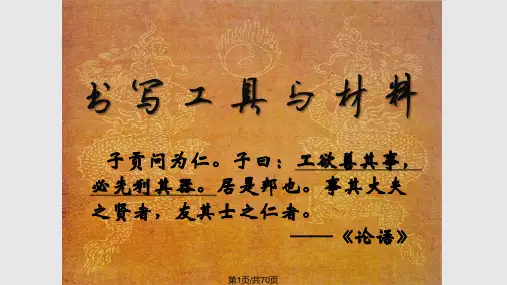 书写工具与材料
子贡问为仁。子曰：工欲善其事，
必先利其器。居是邦也。事其大夫
之贤者，友其士之仁者。
——《论语》
第1页/共70页